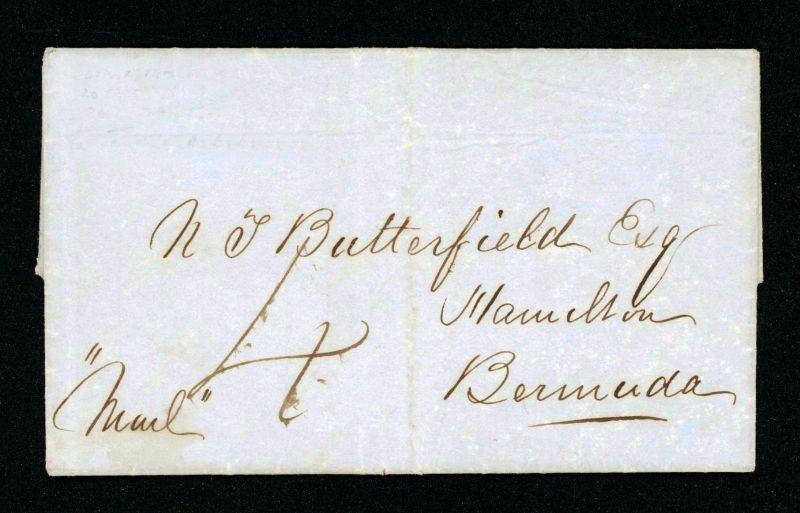 N T Butterfield Esq
Hamilton
Bermuda
4
"Mail"